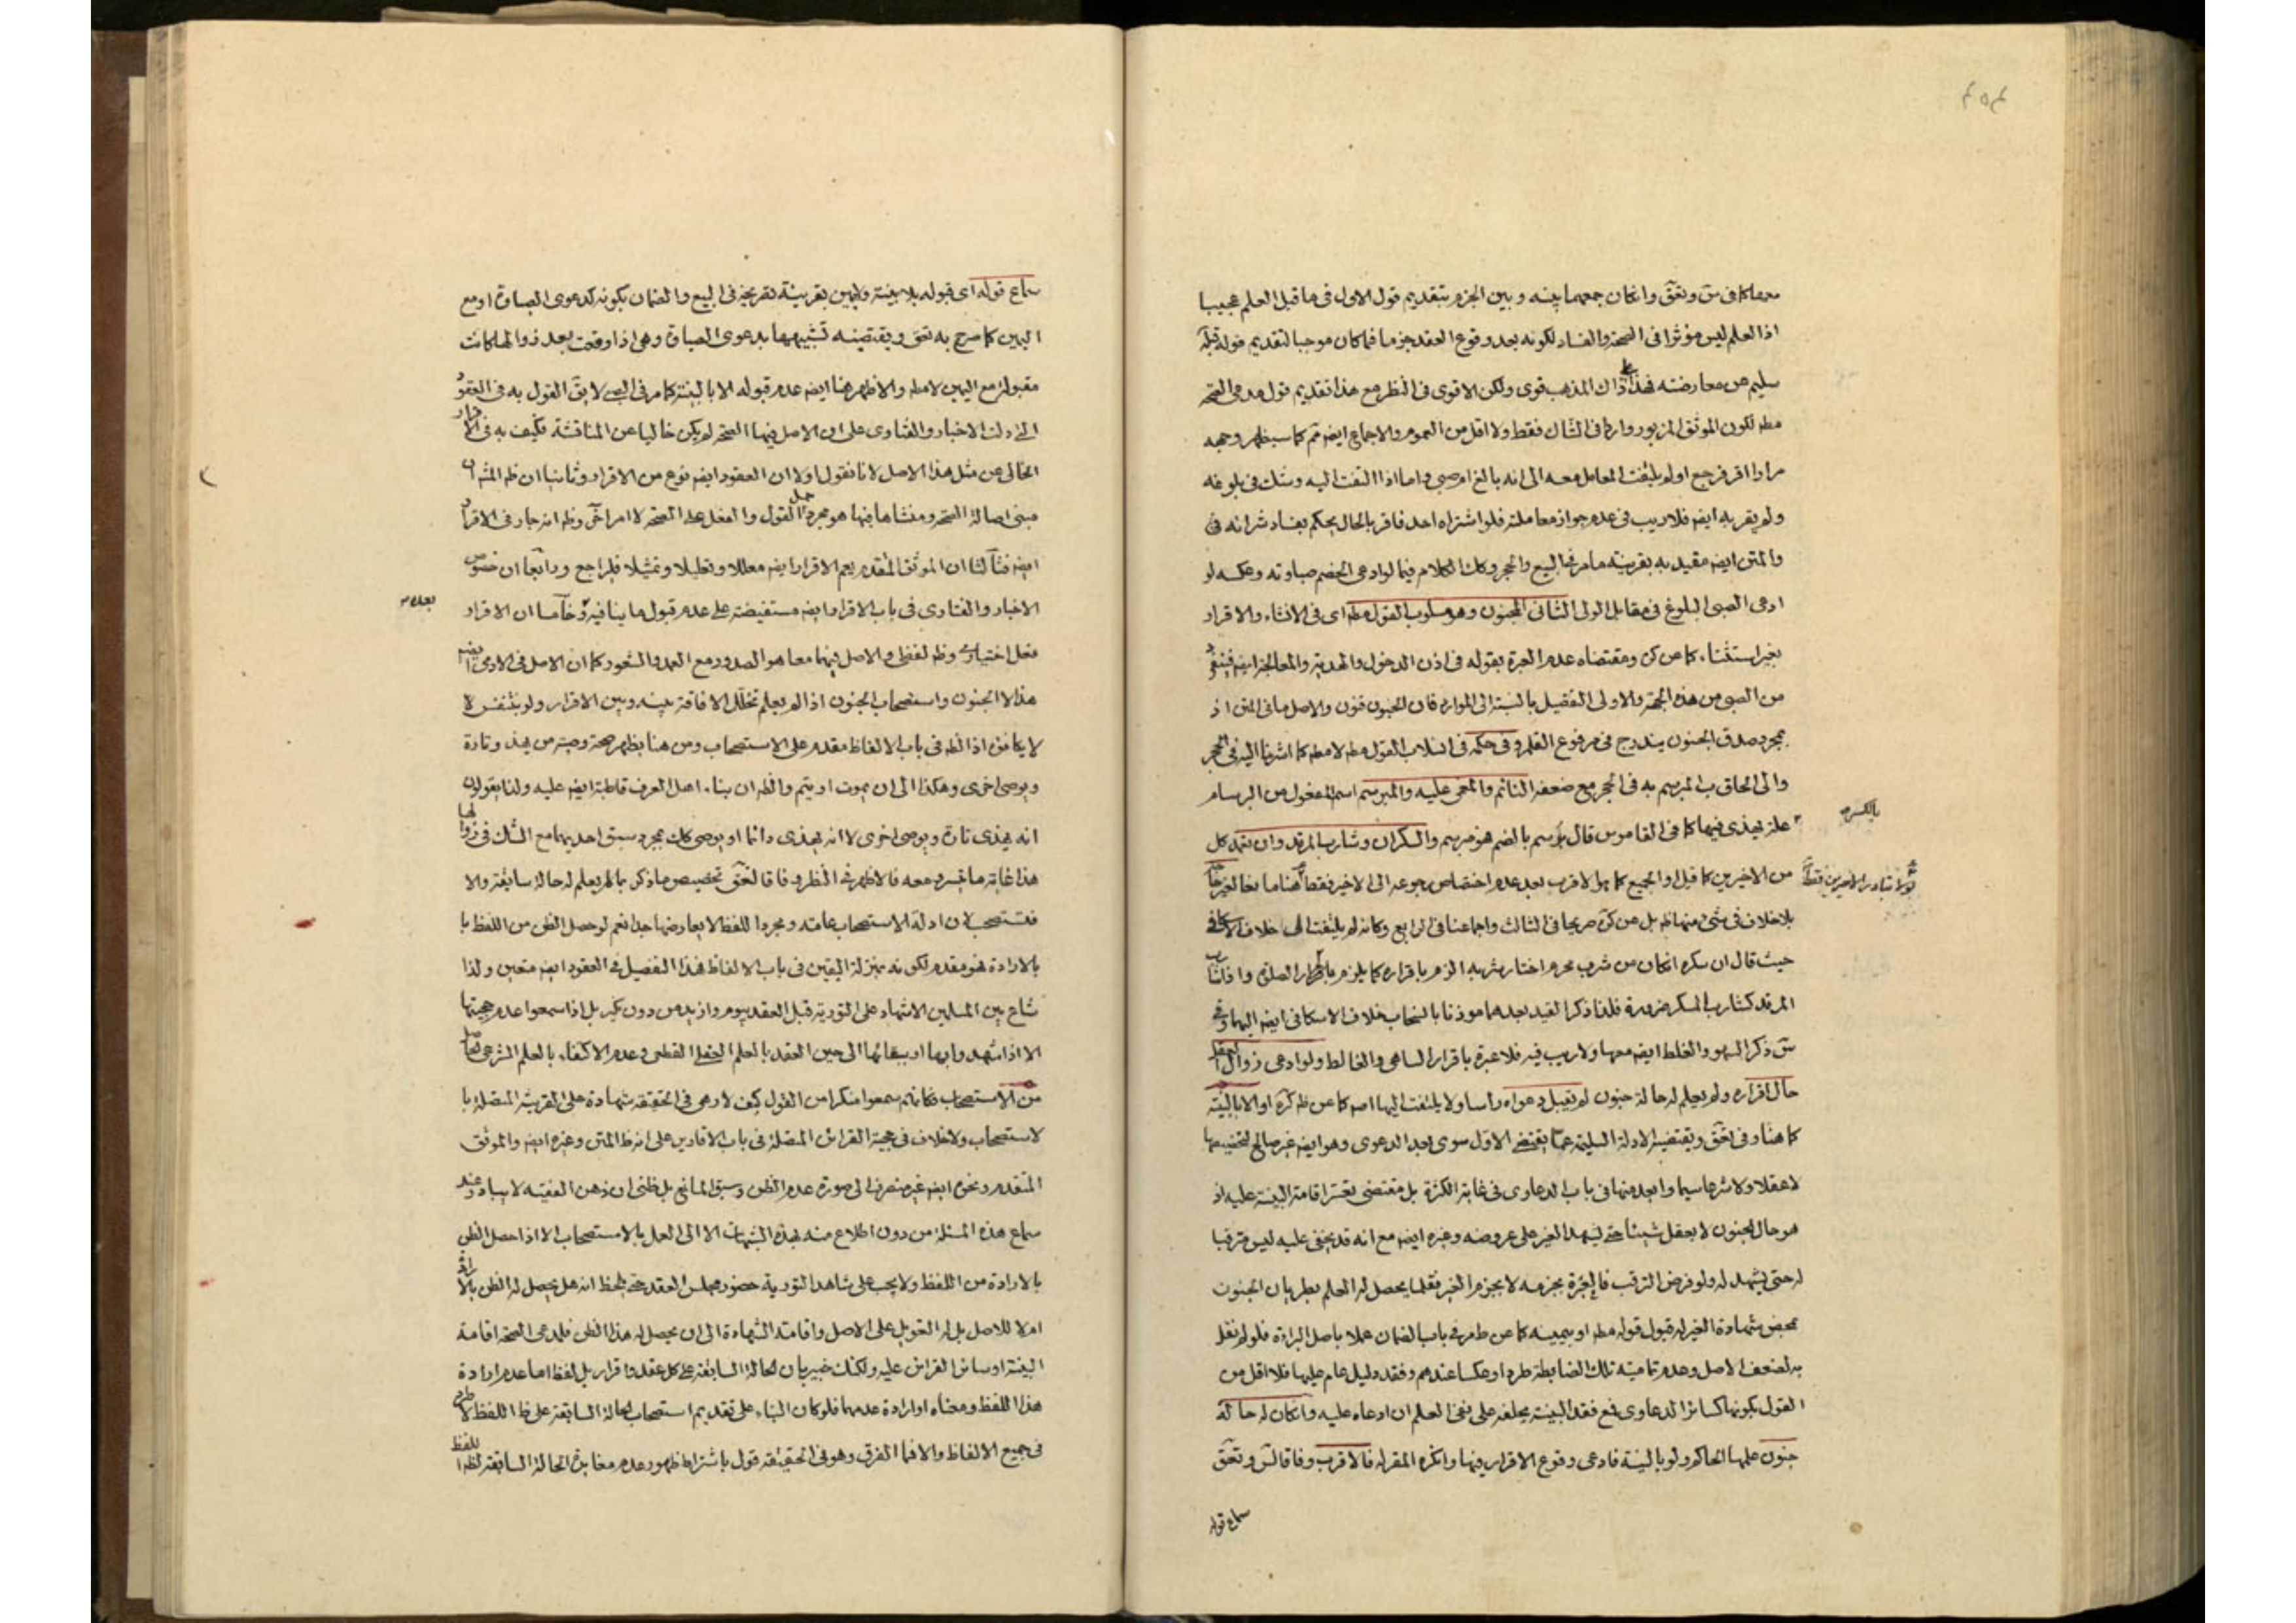 معها كما فى س وتعق وان كان جمعهما بينه وبين الجزم بتقديم قول الاول فى ما قبل العلم عجيبا
اذا العلم ليس مؤثرا فى الصحة والفساد لكونه بعد وقوع العقد جزما فما كان موجبا لتقديم قوله قبله
سليم عن معارضته فهذا ذاك المذهب قوى ولكن الاقوى فى النظر مع هذا تقديم قول مدعى الصحة
مطه لكون الموثق المزبور واردا فى الشاك فقط ولا اقل من العموم والاجماع ايضه ثم كما سيظهر وجهه
مرادا اقر فرجع اولم يلتفت المعامل معه الى انه بالغ ام صبى واما اذا التفت اليه وشك فى بلوغه
ولم يقر به ايضه فلا ريب فى عدم جواز معاملته فلو اشتراه احد فاقر بالحال يحكم بفساد شرائه
والمتن ايضه مقيد به بقرينة ما مر فى البيع والحجر وكك الكلام فيما لو ادعى الخصم صباوته وعكسه لو
ادعى الصبى البلوغ فى مقابل الولى الثانى المجنون وهو مسلوب القول مطه اى فى الانشاء والاقرار
بغير استثناء كما عن كن ومقتضاه عدم العبرة بقوله فى اذن الدخول والهدية والمعالجة ايضه
من الصبى من هذه الجهة والاولى التفصيل بالنسبة الى الموارد فان الجنون فنون والاصل ما فى المتن اذ
بمجرد صدق الجنون يندرج فى مرفوع القلم وفى حكمه فى انسلاب القول مطه لا مطه كما اشرنا اليه فى الحجر
والى الحاق المبرسم به فى الحجر مع ضعفه النائم والمغمى عليه والمبرسم اسم المفعول من البرسام
بالكسر
علة يهذى فيها كما فى القاموس قال برسم بالضم هو مبرسم والسكران وشارب المرقد وان تعمد كل
من الاخيرين كما قيل او الجميع كما هو الاقرب بعد عدم اختصاص رجوعه الى الاخير فقط هنا
لولا تبادر الاخيرين فقط
بلا خلاف فى شئ منهما ظه بل عن كره صريحا فى الثالث واجماعنا فى الرابع وكانه لم يلتفت الى خلاف الاسكافى
حيث قال ان سكره ان كان من شرب محرم اختار شربه الزم باقراره كما يلزم الصلوة
المرقد كشارب المسكر ضرورة فلذا ذكرا القيد بعدهما موذنا بانسحاب خلاف الاسكافى ايضه اليهما وفى
س ذكر السهو والغلط ايضه معها ولا ريب فيه فلا عبرة باقرار الساهى والغالط ولو ادعى زوال العقل
حال اقراره ولم يعلم له حالة جنون لم يقبل دعواه راسا ولا يلتفت اليها اصه كما عن ظه كره او الا بالبينة
كما هنا وفى تعق ويقتضيه الادلة السليمة عما يقتضى الاول سوى بعد الدعوى وهو ايضه غير صالح لتخصيصها
لا عقلا ولا شرعا سيما وابعد منها فى باب الدعاوى فى غاية الكثرة بل مقتضى تعسر اقامة البينة عليه اذ
هو حال الجنون لا يعقل شيئا حتى يشهد الغير على عروضه وغيره ايضه مع انه قد يخفى عليه ليس مترقبا
له حتى يشهد له ولو فرض الترقب فالعبرة بجزمه لا بجزم الغير فقلما يحصل له العلم بطريان الجنون
بمحض شهادة الغير له قبول قوله مطه او بيمينه كما عن ظه مر فى باب الضمان عملا باصل البراءة فلو لم نقل
به لضعف الاصل وعدم تمامية تلك الضابطة طردا وعكسا عندهم وفقد دليل عام عليها فلا اقل من
القول بكونها كسائر الدعاوى فمع فقد البينة يحلفه على نفى العلم ان ادعاه عليه وان كان له حالة
جنون علمها الحاكم ولو بالبينة فادعى وقوع الاقرار فيها وانكره المقر له فالاقرب وفاقا لس وتعق
سماع قوله
سماع قوله اى قبوله بلا بينة ويمين بقرينة تصريحه فى البيع والضمان بكونه كدعوى الصباوة او مع
اليمين كما صرح به تعق ويقتضيه تشبيهها بدعوى الصباوة وهى اذا وقعت بعد زوالها كانت
مقبولة مع اليمين لا مطه والاظهر هنا ايضه عدم قبوله الا بالبينة كما مر فى الصبى لا يق القول به فى العقود
التى دلت الاخبار والفتاوى على ان الاصل فيها الصحة لم يكن خاليا عن المناقشة فكيف به فى الاقرار
الخالى عن مثل هذا الاصل لانا نقول اولا ان العقود ايضه نوع من الاقرار وثانيا ان ظه
مبنى اصالة الصحة ومنشاها فيها هو مجرد حمل القول والفعل على الصحة لا امر اخر وظه انه جار فى الاقرار
ايضه فثالثا ان الموثق المتقدم يعم الاقرار ايضه معللا وتعليلا وتمثيلا فليراجع ورابعا ان خصوص
الاخبار والفتاوى فى باب الاقرار ايضه مستفيضة على عدم قبول ما ينافيه بعده وخامسا ان الاقرار
فعل اختيارى وظه لفظى والاصل فيهما معا هو الصدور مع العمد والشعور كما ان الاصل فى الادمى ايضه
هذا لا الجنون واستصحاب الجنون اذا لم يعلم تخلل الافاقة بينه وبين الاقرار ولو بتنفس لا
لا يكافئ اذا الظه فى باب الالفاظ مقدم على الاستصحاب ومن هنا يظهر صحة وصية من يهذى تارة
ويوصى اخرى وهكذا الى ان يموت او يتم والظه ان بناء اهل العرف قاطبة ايضه عليه ولذا يقولون
انه يهذى تارة ويوصى اخرى لا انه يهذى دائما او يوصى كك بمجرد سبق احديهما مع الشك فى زوالها
هذا غاية ما يسرد معه فالاظهر فى النظر وفاقا لتعق تخصيص ما ذكر بما لم يعلم له حالة سابقة والا
فتستصحب لان ادلة الاستصحاب عامة ومجرد اللفظ لا يعارضها جدا نعم لو حصل الظن من اللفظ با
بالارادة فهو مقدم لكونه بمنزلة اليقين فى باب الالفاظ فهذا التفصيل فى العقود ايضه متعين ولذا
شاع بين المسلمين الاشهاد على التورية قبل العقد بيوم وازيد من دون نكير بل اذا سمعوا عدم حجيتها
الا اذا شهدوا بها او ببقائها الى حين العقد بالعلم العقلى القطعى وعدم الاكتفاء بالعلم الشرعى الحاصل
من الاستصحاب فكانهم سمعوا منكرا من القول كيف لا وهى فى الحقيقة شهادة على القرينة المتصلة با
لاستصحاب ولا خلاف فى حجية القرائن المتصلة فى باب الاقارير على انه ظ المتن وغيره ايضه والموثق
المتقدم ونحوه ايضه غير منصرف الى صورة عدم الظن وسبق المانع بل ظنى ان ذهن الفقيه لا يتبادر عند
سماع هذه المسئلة من دون اطلاع منه بهذه الشبهات الا الى العمل بالاستصحاب الا اذا حصل الظن
بالارادة من اللفظ ولا يجب على شاهد التورية حضور مجلس العقد حتى يلحظ انه هل يحصل له الظن بالارادة
ام لا للاصل بل له التعويل على الاصل واقامة الشهادة الى ان يحصل له هذا الظن فلمدعى الصحة اقامة
البينة او سائر القرائن عليه ولكنك خبير بان الحالة السابقة على كل عقد واقرار بل لفظ اما عدم ارادة
هذا اللفظ ومعناه او ارادة عدمها فلو كان البناء على تقديم استصحاب الحالة السابقة على ظ اللفظ
فى جميع الالفاظ والا فما الفرق وهو فى الحقيقة قول باشتراط ظهور عدم مغايرة الحالة السابقة للفظ